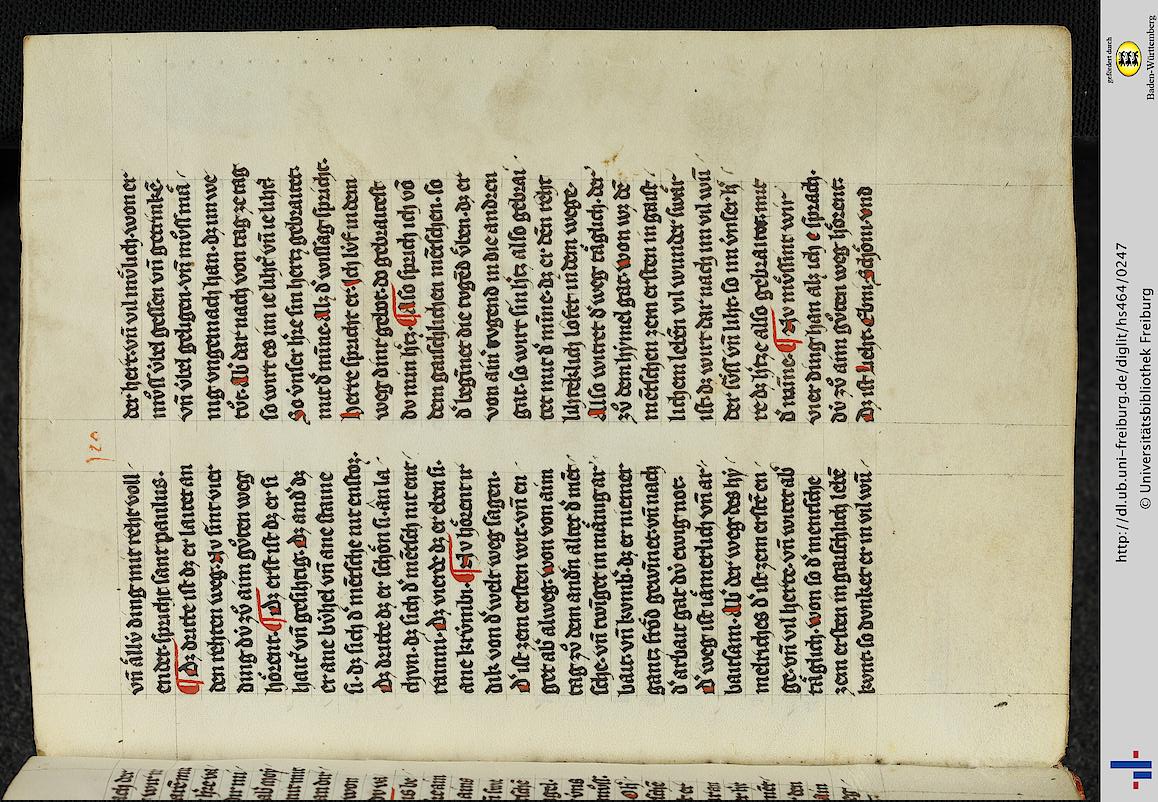 vn̄ allv́ ding mit reht voll
endet·spricht sant paulus.
¶ Dz dritte ist dz er lauter an
den rehten weg·Nv sint vier
ding dv́ zv̊ aim gv̊ten weg
hörent·¶ Dz erst ist dz er si
hart vn̄ gesihtig·Dz and' dz
er ane bv́hel vn̄ ane staine
si·dz sich d' mēsche nit enstoz·
Dz dritte dz er schön si·ān la
chvn·dz sich d' mēsch nit ent
rainni·Dz vierde dz er eben si·
ane krv́mbi·¶ Nv hörent ir
dik von d' welt weg sagen·
D' ist zem ersten wit·vn̄ en
get ab alweg·won von aim
tag zv̊ dem andn altet d' mēt
sche·vn̄ in mānig ar
bait·vn̄ kvmb·dz er niemer
gantz fröd gewinet·vn̄ nach
d' arbait gat dv́ ewig not·
D' weg ist iämerlich vn̄ ar
baitsam·Ab' der weg des hy
melriches d' ist zem erstē en
ge·vn̄ vil herte·vn̄ witet ab'
täglich·won so d' mentsche
zem ersten in gaischlich lebē
kvnt·so dvnket er in vil wn̄
120
der hert·vn̄ vil mv̊lich·won er
mv̊ss v́bel gessen vn̄ getrinkē·
vn̄ v́bel geligen·vn̄ mv̊ss mā
nig vngemach han·dz im we
tv̊t·Ab' dar nach von tag ze tag
so wirt es im ie liht vn̄ ie liht
So vnser h're sin hertz gebraitet·
mit d' mīne·Alz d' wissag spricht·
herre spricht er·Ich lv́f in dem
weg diner gebot·do gebraitest
dv min h'tz·¶ Also sprich ich vō
dem gaischlichen mēschen·so
d' beginet die tvgēd v́ben·dz er
von ain' tvgend in die andren
gat·so wirt sin h'tz also gebrai
tet mit d' mine·dz er dēn reht
luterklich löfet in dem wege·
Also witet d' weg täglich·der
zv̊ dem hymel gat·won wz dē
mēschen zem ersten in gaist
lichem lebēn vil wunder swär
ist·dz wirt dar nach im vil wn̄
der sv̊ss vn̄ liht·so im vnser h'
re dz h'tze also gebraitot·mit
d' mīne·¶ Nv mv̊ssint wir
vier ding han alz ich e sprach·
dv́ zv̊ aim gv̊ten weg hörent·
Dz ist hert·Ebni·Schöni·vnd
http://dl.ub.uni-freiburg.de/diglit/hs464/0247
© Universitätsbibliothek Freiburg
gefördert durch
Baden-Württemberg